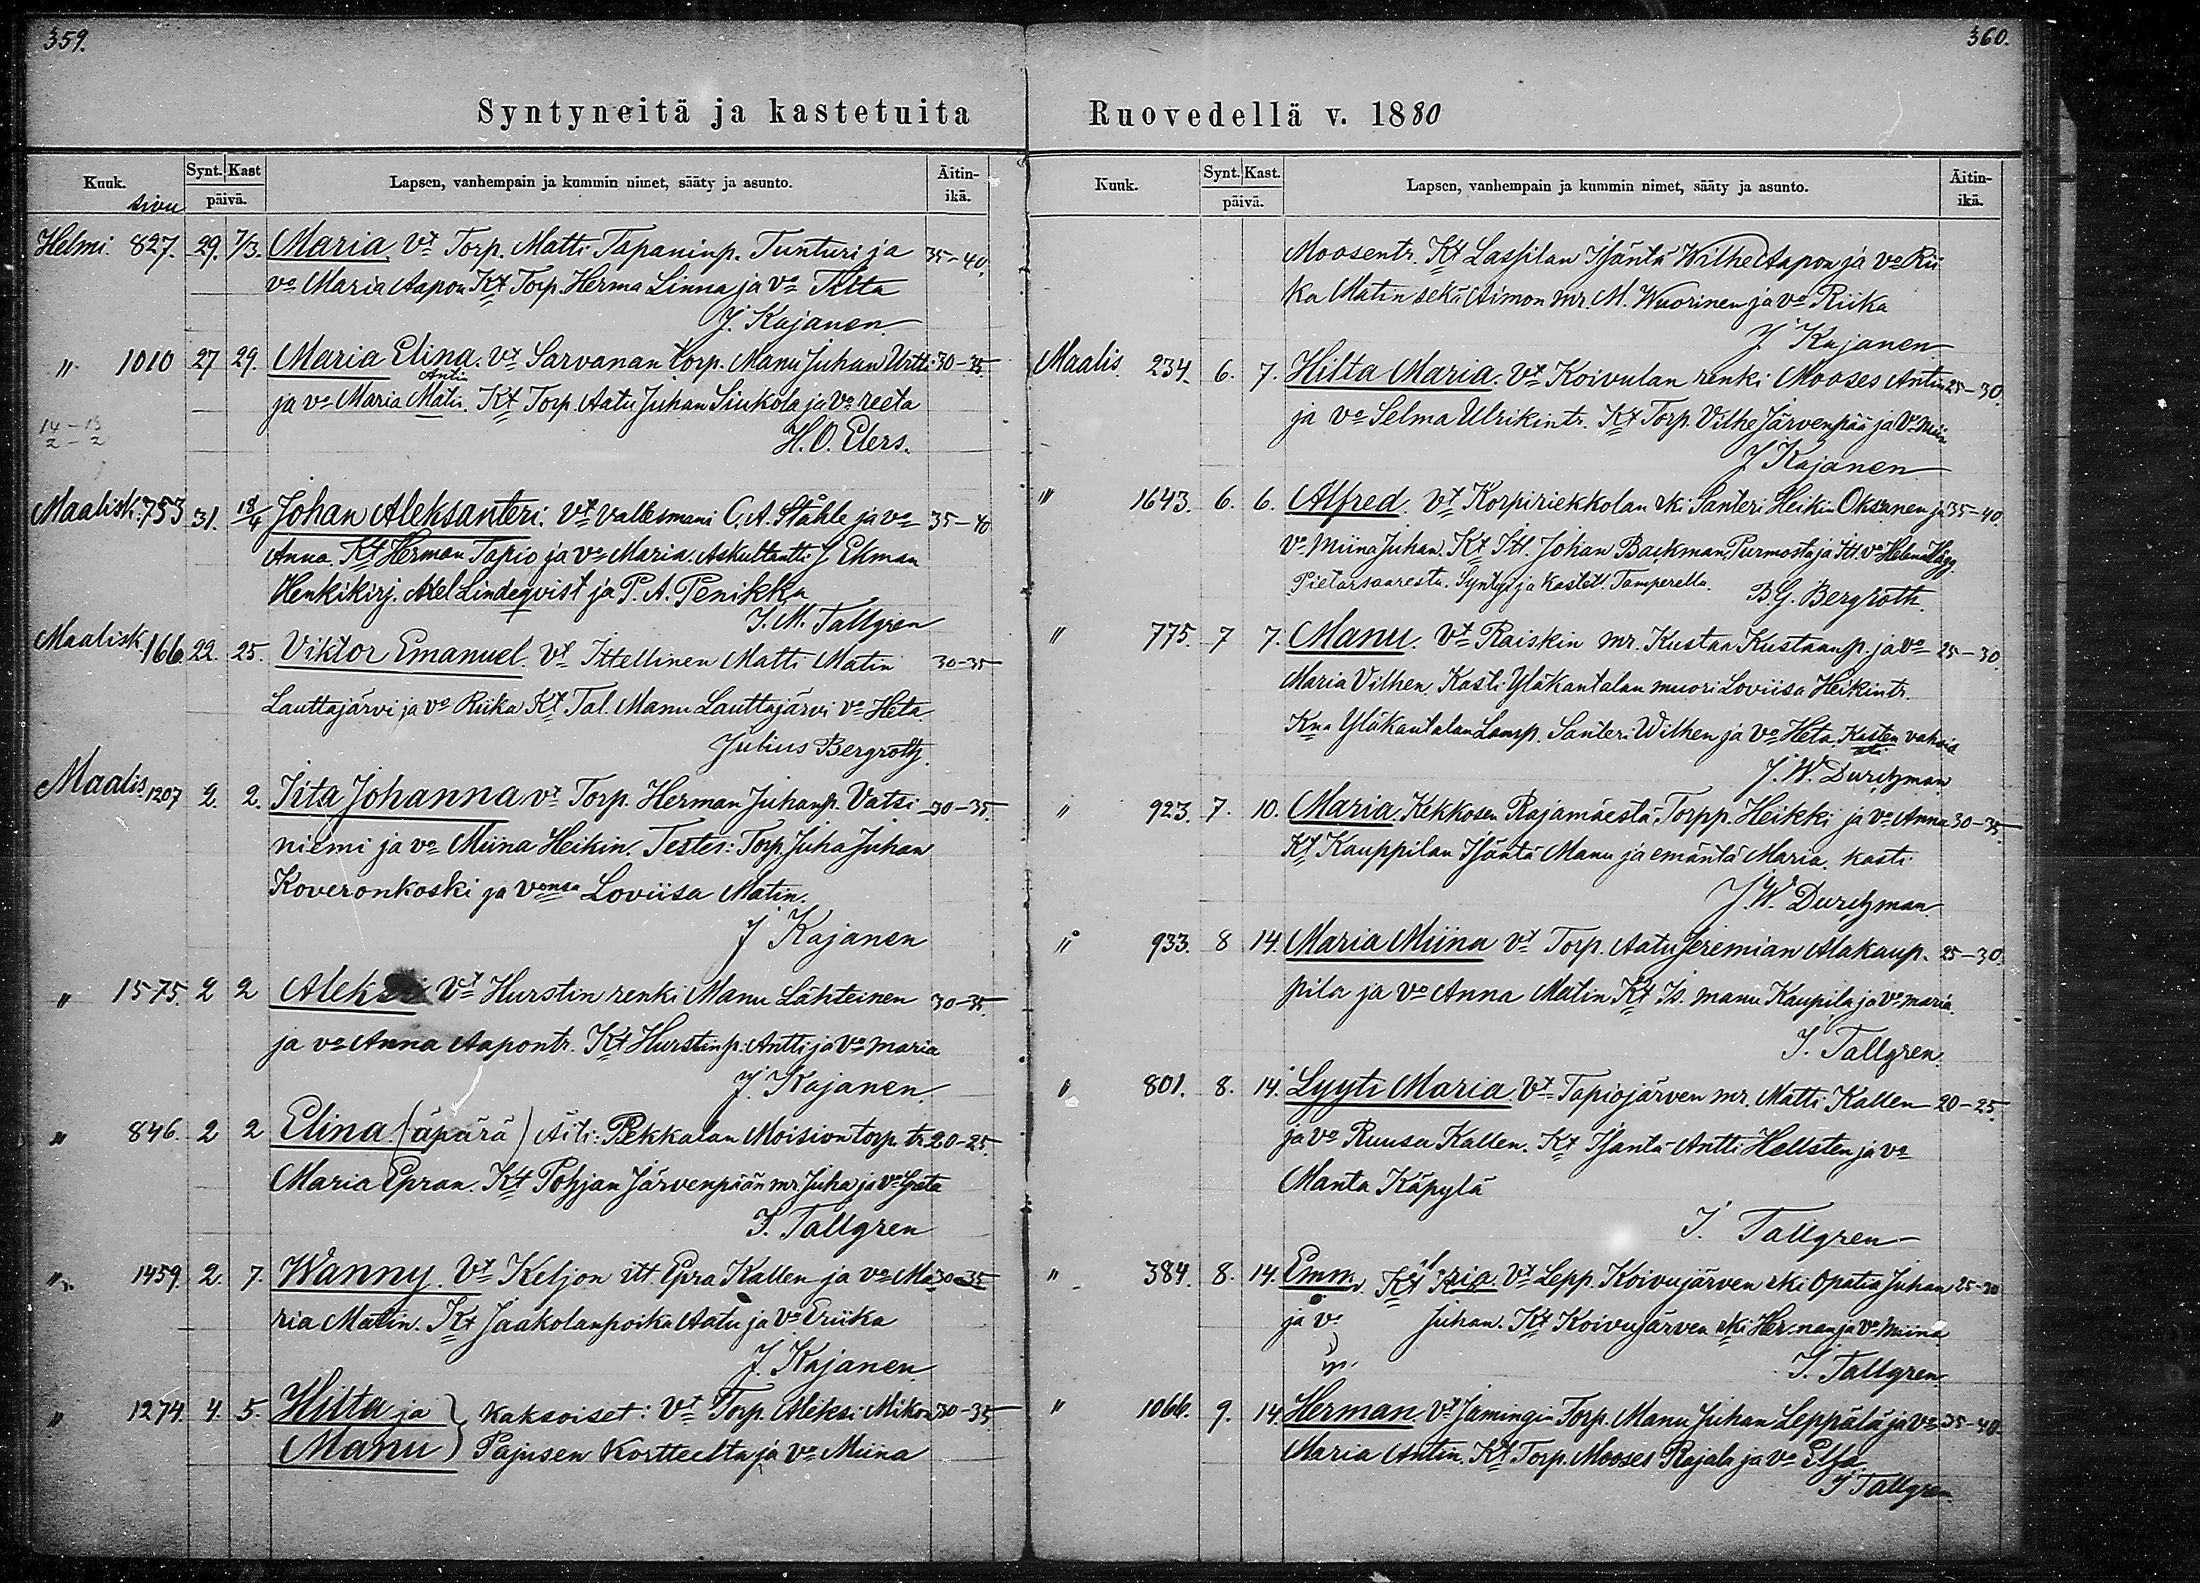 359.
Syntyneitä ja kastetuita
Kuuk. sivu Synt. Kast päivä. Lapsen, vanhempain ja kummin nimet, sääty ja asunto. Äitin-ikä.
Helmi. 827. 29. 7/3. Maria. Vt Torp. Matti Tapaninp. Tunturi ja 35-40.
vo Maria Aapon Kt Torp. Herma Linna ja vo Tilta
J. Kajanen
" 1010 27 29. Maria Elina. vt Sarvanan torp. Manu Juhan Urtti 30-35.
Antin
ja vo Maria Matin. Kt Torp. Aatu Juhan Siukola ja vo reeta
14-13
2-2
H. O. Elers.
Maalisk. 753 31. 18/4 Johan Aleksanteri. Vt vallesmani C. A. Ståhle ja vo 35-40
Anna. Kt Herman Tapio ja vo Maria. Askultantti J Ekman
Henkikirj. Axel Lindeqvist ja P. A. Penikka
J. M. Tallgren
Maalisk. 166. 22. 25. Viktor Emanuel. Vt Ittellinen Matti Matin 30-35
Lauttajärvi ja vo Riika Kt Tal. Manu Lauttajärvi vo Heta
Julius Bergroth.
Maalis. 1207 2. 2. Iita Johanna vt Torp. Herman Juhanp. Vatsi- 30-35.
niemi ja vo Miina Heikin. Testes: Torp. Juha Juhan
Koveronkoski ja vonsa Loviisa Matin.
J Kajanen
" 1575. 2 2 Aleksi Vt Hurstin renki Manu Lähteinen 30-35.
ja vo Anna Aapontr. Kt Hurstin p. Antti ja vo Maria
J. Kajanen.
" 846. 2 2 Elina (äpärä) Äiti: Pekkalan Moision torp. tr. 20-25.
Maria Epran. Kt Pohjan Järvenpään mr Juha ja vo Greta
J. Tallgren
" 1459. 2. 7. Wanny. Vt Keljon itt. Epra Kallen ja vo Ma 30-35
ria Matin. Kt Jaakolanpoika Aatu ja vo Eriika
J. Kajanen
" 1274. 4. 5. Hilta ja } kaksoiset: Vt Torp. Aleksi Mikon 30-35
Manu } Pajusen Kortteelta ja vo Miina
360.
Ruovedellä v. 1880
Kuuk. Synt. Kast. päivä. Lapsen, vanhempain ja kummin nimet, sääty ja asunto. Äitin-ikä.
Moosentr. Kt Lassilan Isäntä Wilhe Aapon ja vo Rii
ka Matin sekä Aimon mr. M. Wuorinen ja vo Riika
J Kajanen
Maalis. 234. 6. 7. Hilta Maria. Vt Koivulan renki Mooses Antin 25-30.
ja vo Selma Ulrikintr. Kt Torp. Vilhe Järvenpää ja vo Miin
J Kajanen
" 1643. 6. 6. Alfred. Vt Korpiriekkolan rki Santeri Heikin Oksanen ja 35-40.
vo Miina Juhan. Kt Itl. Johan Backman Purmosta ja Itl. vo Helena Hägg
Pietarsaaresta. Syntyi ja kastett. Tamperella. B. G. Bergroth.
" 775. 7 7. Manu. Vt Raiskin mr. Kustaa Kustaanp. ja vo 25-30.
Maria Vilhen Kasti Yläkautalan muori Loviisa Heikintr.
Kna Yläkautalan Lamp. Santeri Wilhen ja vo Heta. Kasten vahvis
ti
J. W. Durchman
" 923. 7. 10. Maria Kekkosen Rajamäestä, Torpp. Heikki ja vo Anna 30-35
Kt Kauppilan Isäntä Manu ja emäntä Maria. kasti
J. W. Durchman
" 933. 8 14. Maria Miina vt Torp. Aatu Jeremian Alakaup- 25-30.
pila ja vo Anna Matin Kt Is. Manu Kaupila ja vo maria.
J. Tallgren.
" 801. 8. 14. Lyyti Maria. Vt Tapiojärven mr. Matti Kallen 20-25.
ja vo Ruusa Kallen. Kt Isäntä Antti Hellsten ja vo
Manta Käpylä
J. Tallgren
" 384. 8. 14. Emm ria. Vt Lepp. Koivujärven rki Opatia Juhan 25-30
ja vo Juhan. Kt Koivujärven rki Herman ja vo Miina
J. Tallgren.
" 1066. 9. 14. Herman Vt Jämingin Torp. Manu Juhan Leppälä ja vo 35-40.
Maria Antin. Kt Torp. Mooses Rajala ja vo Elsa.
J Tallgren